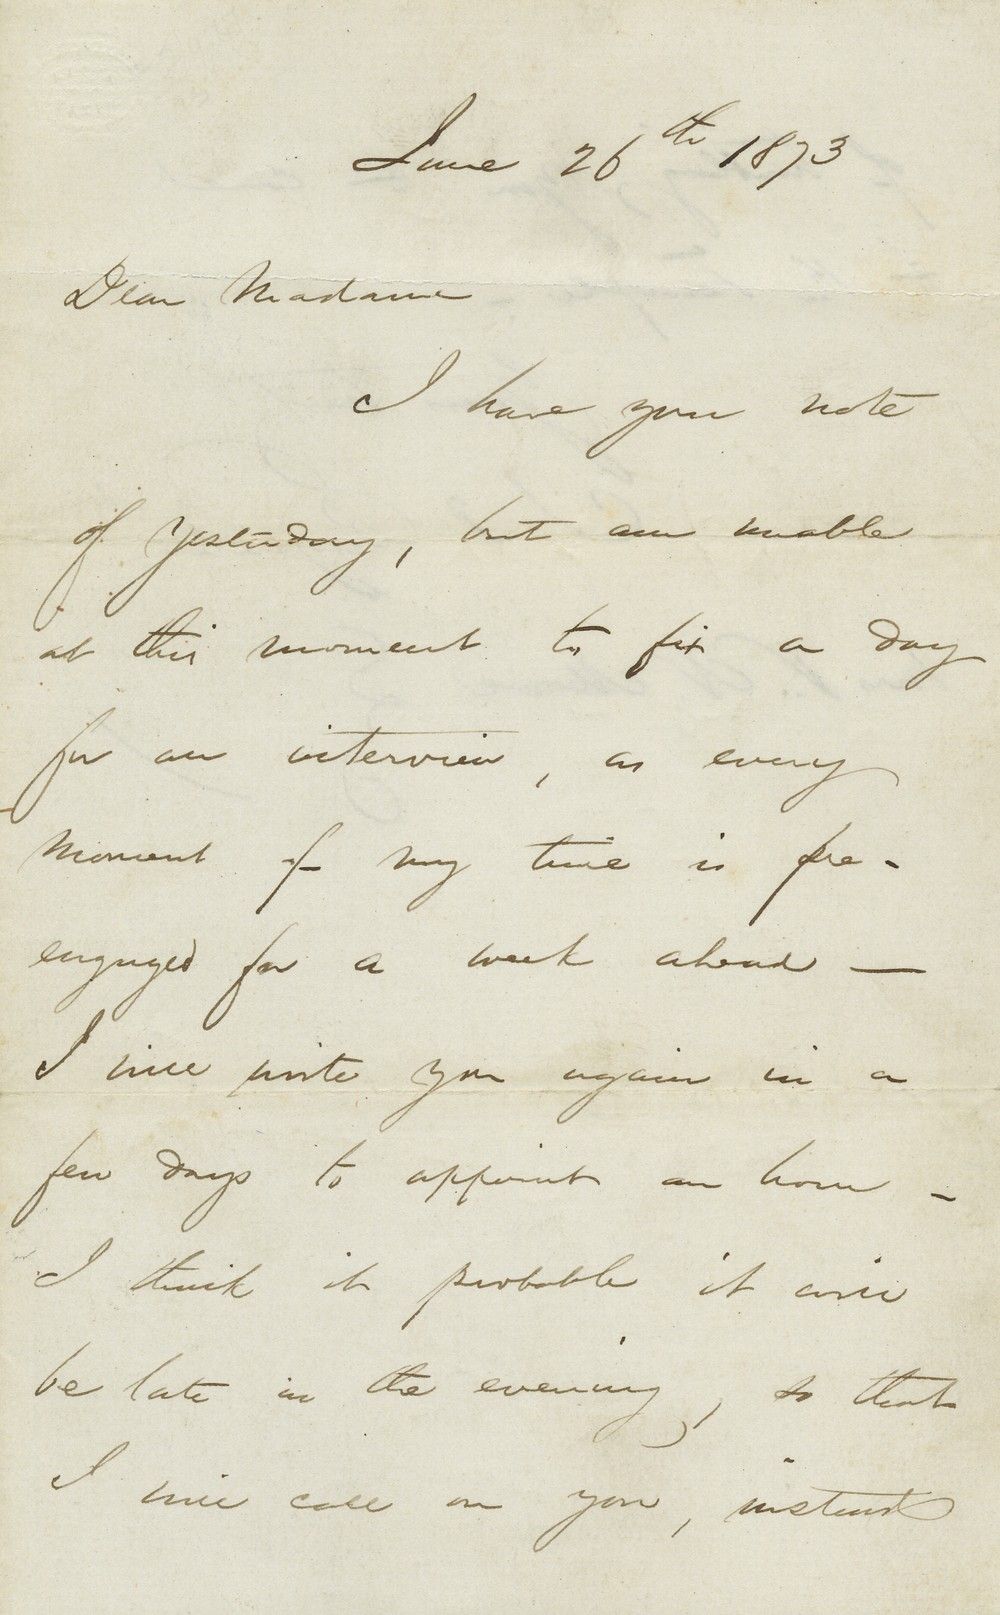 June 26th 1873
Dear Madame
I have your note
of yesterday, but am unable
at this moment to fix a day
for an interview, as every
moment of my time is pre-
engaged for a week ahead —
I will write you again in a
few days to appoint an hour -
I think it probable it will
be late in the evening, so that
I will call on you, instead